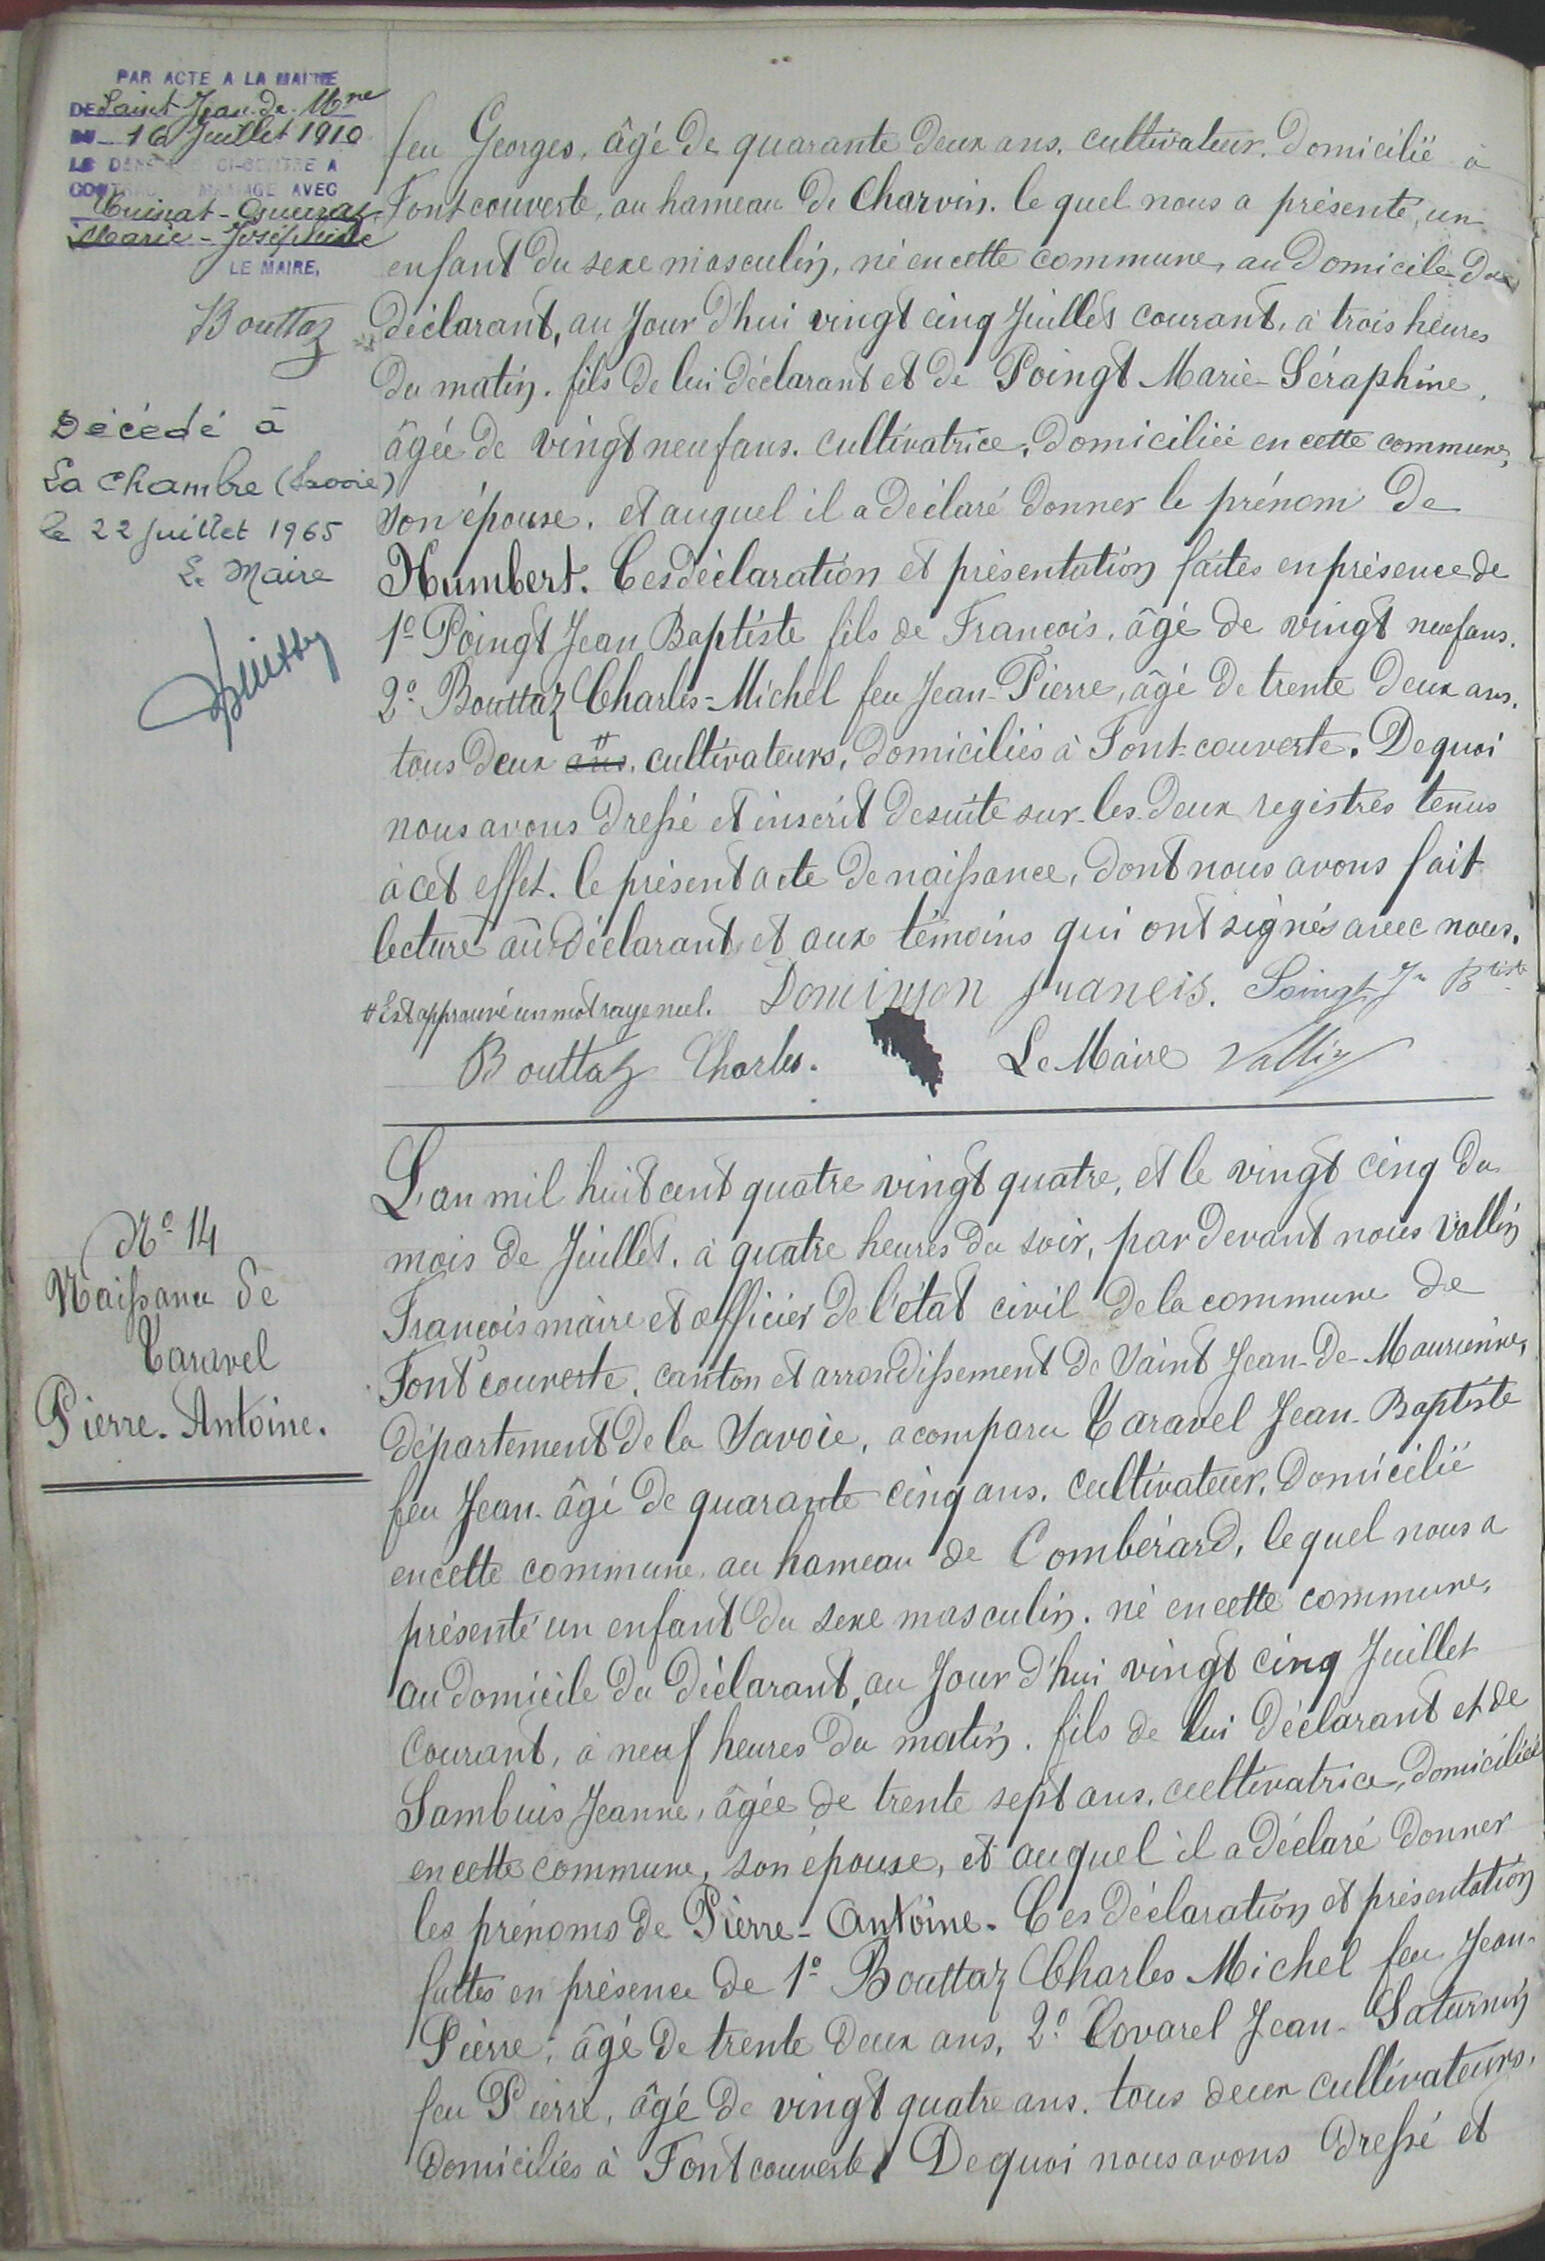 PAR ACTE A LA MAIRIE
DE Saint Jean-de-Mne
DU 16 Juillet 1910
LE CI-CONTRE A
CONTRACTÉ MARIAGE AVEC
Marie-Joséphine
LE MAIRE,
Bouttaz
Décédé à
La Chambre (Savoie)
le 22 Juillet 1965
Le Maire
feu Georges, âgé de quarante deux ans. cultivateur. domicilié à
Fontcouverte, au hameau de Charvin. lequel nous a présenté, un
enfant du sexe masculin, né en cette commune, au domicile du
déclarant, au Jour d'hui vingt cinq Juillet courant, à trois heures
du matin. fils de lui déclarant et de Poingt Marie-Séraphine,
âgée de vingt neuf ans. cultivatrice, domiciliée en cette commune,
son épouse. et auquel il a déclaré donner le prénom de
Humbert. Ces déclaration et présentation faites en présence de
1º Poingt Jean Baptiste fils de François, âgé de vingt neuf ans.
2º Bouttaz Charles-Michel feu Jean-Pierre, âgé de trente deux ans.
tous deux ans, cultivateurs, domiciliés à Font-couverte. De quoi
nous avons dressé et inscrit desuite sur les deux registres tenus
à cet effet. le présent acte de naissance, dont nous avons fait
lecture au déclarant et aux témoins qui ont signés avec nous.
# Est approuvé un mot rayé nul. Francis. Poingt Jn Btiste
Bouttaz Charles. Le Maire Vallin
Nº 14
Naissance de
Taravel
Pierre-Antoine.
L'an mil huit cent quatre vingt quatre, et le vingt cinq du
mois de Juillet, à quatre heures du soir, par devant nous Vallin
François maire et officier de l'état civil de la commune de
Font couverte, canton et arrondissement de Saint Jean-de-Maurienne,
département de la Savoie, a comparu Taravel Jean-Baptiste
feu Jean. âgé de quarante cinq ans. cultivateur, domicilié
en cette commune, au hameau de Combérard, lequel nous a
présenté un enfant du sexe masculin. né en cette commune,
au domicile du déclarant, au Jour d'hui vingt cinq Juillet
courant, à neuf heures du matin. fils de lui déclarant et de
Sambuis Jeanne, âgée de trente sept ans. cultivatrice, domiciliée
en cette commune, son épouse, et auquel il a déclaré donner
les prénoms de Pierre-Antoine. Ces déclaration et présentation
faites en présence de 1º Bouttaz Charles Michel feu Jean-
Pierre, âgé de trente deux ans, 2º Covarel Jean-Saturnin
feu Pierre, âgé de vingt quatre ans. tous deux cultivateurs,
domiciliés à Fontcouverte. De quoi nous avons dressé et